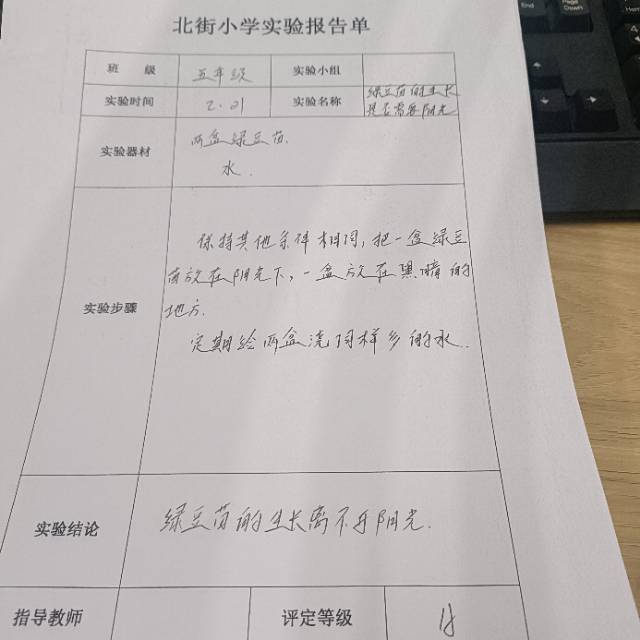 北街小学实验报告单
班 级 五年级 实验小组
实验时间 2.21 实验名称 绿豆苗的生长
是否需要阳光
实验器材 两盆绿豆苗.
水.
保持其他条件相同,把一盆绿豆
苗放在阳光下,一盆放在黑暗的
实验步骤 地方.
定期给两盆浇同样多的水.
实验结论 绿豆苗的生长离不开阳光.
指导教师 评定等级
End
Page
Down